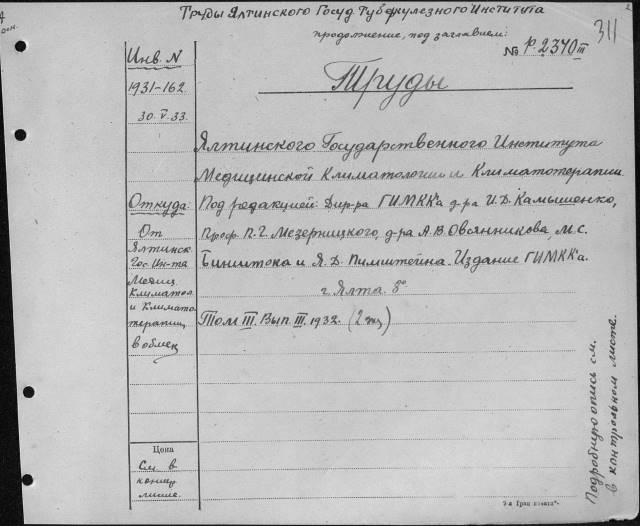 Труды Ялтинского Госуд Туберкулезного Института
продолжение, под заглавием:
№ Р.2340 III
311
Инв. N
1931-162
30.V.33.
Труды
Ялтинского Государственного Института
Медицинской Климатологии и Климатотерапии.
Откуда:
Под редакцией: Дир-ра ГИМКК'а д-ра И.Д. Камышенко,
От
Проф. П.Г. Мезерницкого, д-ра А.В. Овсянникова, М.С.
Ялтинск.
Гос. Ин-та
Бинштока и Я.Д. Пимштейна. Издание ГИМКК'а.
Медиц.
Климатол.
г. Ялта. 8°
и Климато
терапии
Том III. Вып. III. 1932. (2 экз)
в обмен
Цена
См. в
конце
листе.
Подробную опись см.
в контрольном листе.